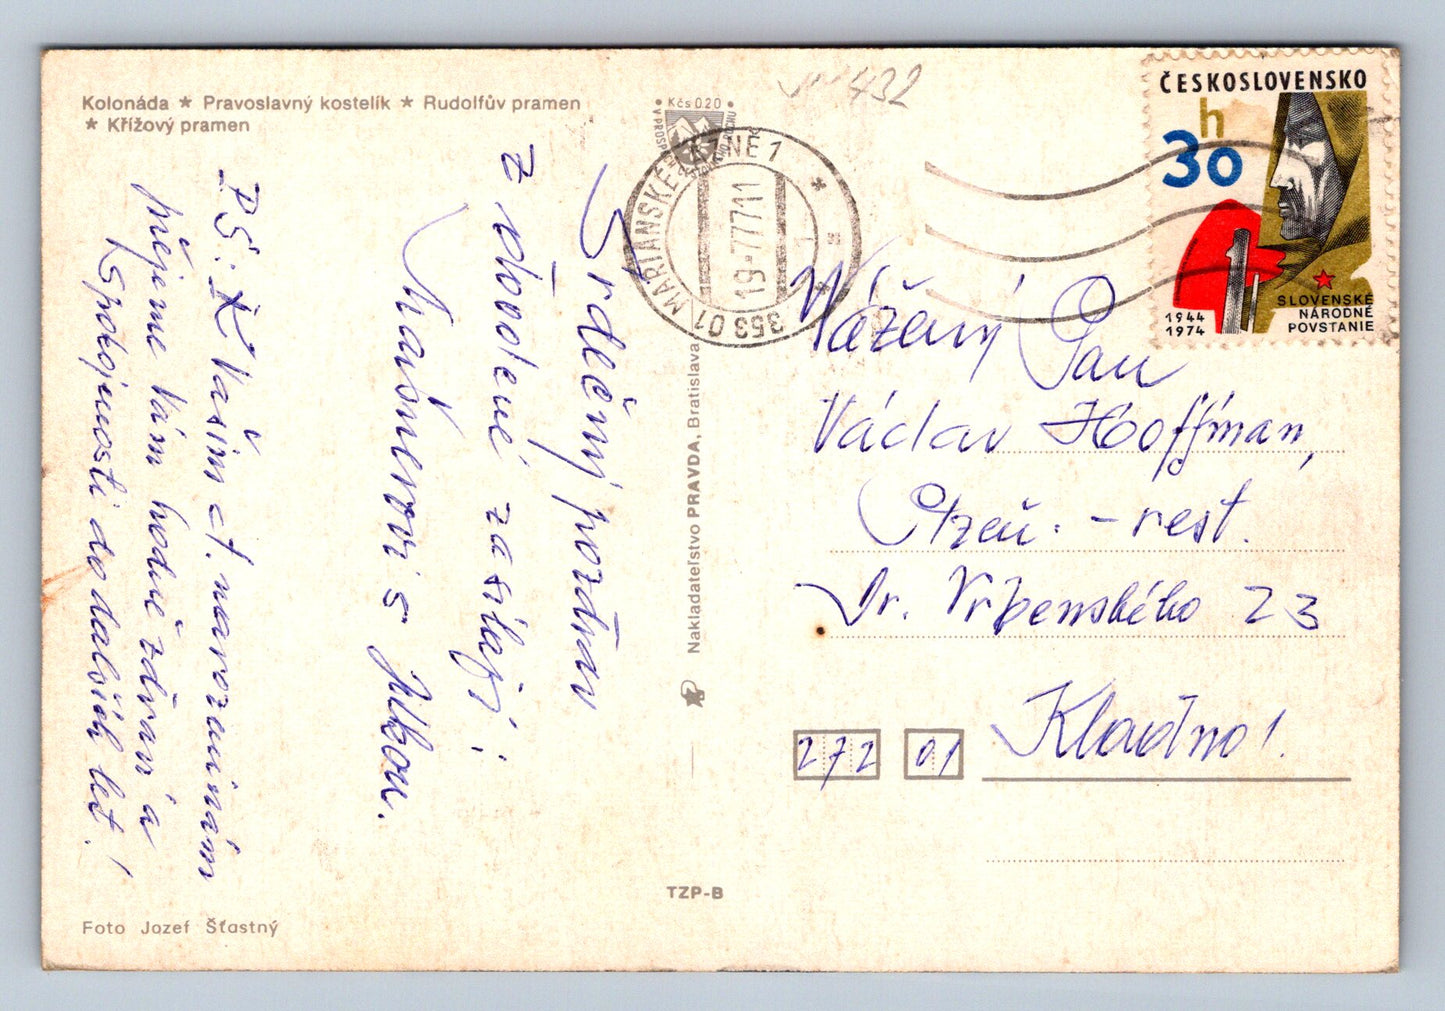 Kolonáda ★ Pravoslavný kostelík ★ Rudolfův pramen
★ Křížový pramen
Kčs 0.20
432
ČESKOSLOVENSKO
30 h
1944
1974
SLOVENSKÉ
NÁRODNÉ
POVSTANIE
353 01 MARIÁNSKÉ LÁZNĚ 1
19.-7.77 11
Srdečný pozdrav
z dovolené zasílají:
s Jitkou.
PS: K Vašim narozeninám
přejeme Vám hodně zdraví a
spokojenosti do dalších let!
Vážený Pan
Václav Hoffman,
Plzeň. - rest.
Dr. Vrbenského 23
272 01 Kladno!
Nakladateľstvo PRAVDA, Bratislava
TZP-B
Foto Jozef Šťastný